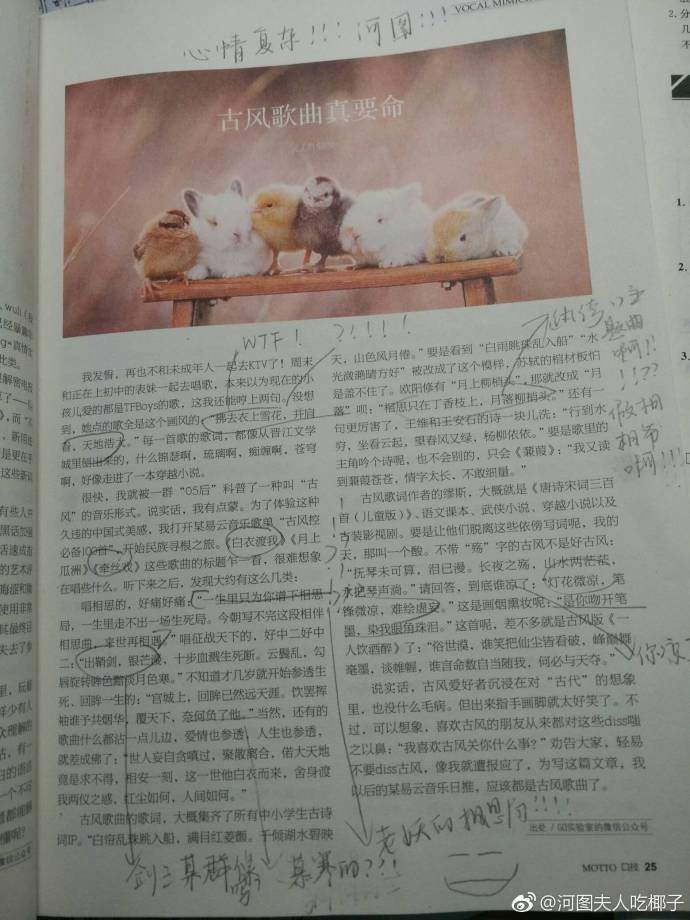 VOCAL MIMICR
心情复杂!!!河图!!!
古风歌曲真要命
WTF! ?!!!!
我发誓,再也不和未成年人一起去KTV了!周末
和正在上初中的表妹一起去唱歌,本来以为现在的小
孩儿爱的都是TFBoys的歌,这我还能哼上两句。没想
到,她点的歌全是这个画风的:“拂去衣上雪花,并肩
看,天地浩大。”每一首歌的歌词,都像从晋江文学
城里
出来的,什么锦瑟啊,琉璃啊,痴缠啊,苍穹
啊,好像走进了一本穿越小说。
很快,我就被一群“05后”科普了一种叫“古
风”的音乐形式。说实话,我有点蒙。为了体验这种
久违的中国式美感,我打开某易云音乐歌单“古风控
必备100首”,开始民族寻根之旅。《白衣渡我》《月上
瓜洲》《牵丝戏》这些歌曲的标题乍一看,很难想象
在唱些什么。听下来之后,发现大约有这么几类:
唱相思的,好痛好痛:“一生里只为你谱下相思
局,一生里走不出一场生死局。今朝写不完这段相伴
相思曲,来世再相遇。”唱征战天下的,好中二好中
二:“出鞘剑,银芒凌,十步血溅生死断。云鬓乱,勾
唇旋转眸色黯淡月色寒。”不知道才几岁就开始参透生
死,回眸一生的:“宫城上,回眸已然远天涯。饮罢挥
袖谁予共烟华,覆天下,奈何负了他。”当然,还有的
歌曲什么都沾一点儿边,爱情也参透,人生也参透,
就差成佛了:“世人妄自贪嗔过,聚散离合,偌大天地
竟是求不得,相安一刻,这一世他白衣而来,舍身渡
我两仪之惑,红尘如何,人间如何。”
古风歌曲的歌词,大概集齐了所有中小学生古诗
词IP。“白帘乱珠跳入船,满目红菱颤。千倾湖水碧映
天,山色风月倦。”要是看到“白雨跳珠乱入船”“水
光潋滟晴方好”被改成了这个模样,苏轼的棺材板怕
是盖不住了。欧阳修有“月上柳梢头”,那就改成“月
落”呗:“相思只在丁香枝上,月落柳梢头。”还有一
句更厉害了,王维和王安石的诗一块儿洗:“行到水
穷,坐看云起,望春风又绿,杨柳依依。”要是歌里的
主角吟个诗呢,也不会别的,只会《蒹葭》:“我又读
到蒹葭苍苍,情字太长,不敢细量。”
古风歌词作者的缪斯,大概就是《唐诗宋词三百
首(儿童版)》、语文课本、武侠小说、穿越小说以及
古装影视剧。要是让他们脱离这些依傍写词呢,我的
天,那叫一个酸。不带“殇”字的古风不是好古风:
“抚琴未可算,泪已漫。长夜之殇,山水两茫茫,
水把琴声淌。”请回答,到底谁凉了:“灯花微凉,笔
锋微凉,难绘虚妄。”这是画烟熏妆呢:“是你吻开笔
墨,染我眼角珠泪。”这首呢,差不多就是古风版《一
人饮酒醉》了:“俗世漠,谁笑把仙尘皆看破,峰巅蘸
毫墨,谈帷幄,谁言命数自当随我,何必与天夺。”
说实话,古风爱好者沉浸在对“古代”的想象
里,也没什么毛病。但出来指手画脚就太好笑了。不
过,可以想象,喜欢古风的朋友从来都对这些diss嗤
之以鼻:“我喜欢古风关你什么事?”劝告大家,轻易
不要diss古风,像我就遭报应了,为写这篇文章,我
以后的某易云音乐日推,应该都是古风歌曲了。
出处/GQ实验室的微信公众号
假相
啊!!!
你凉了
老妖的相思句!!!!
剑三某群像
慕寒的???!
MOTTO 口技 25
@河图夫人吃椰子